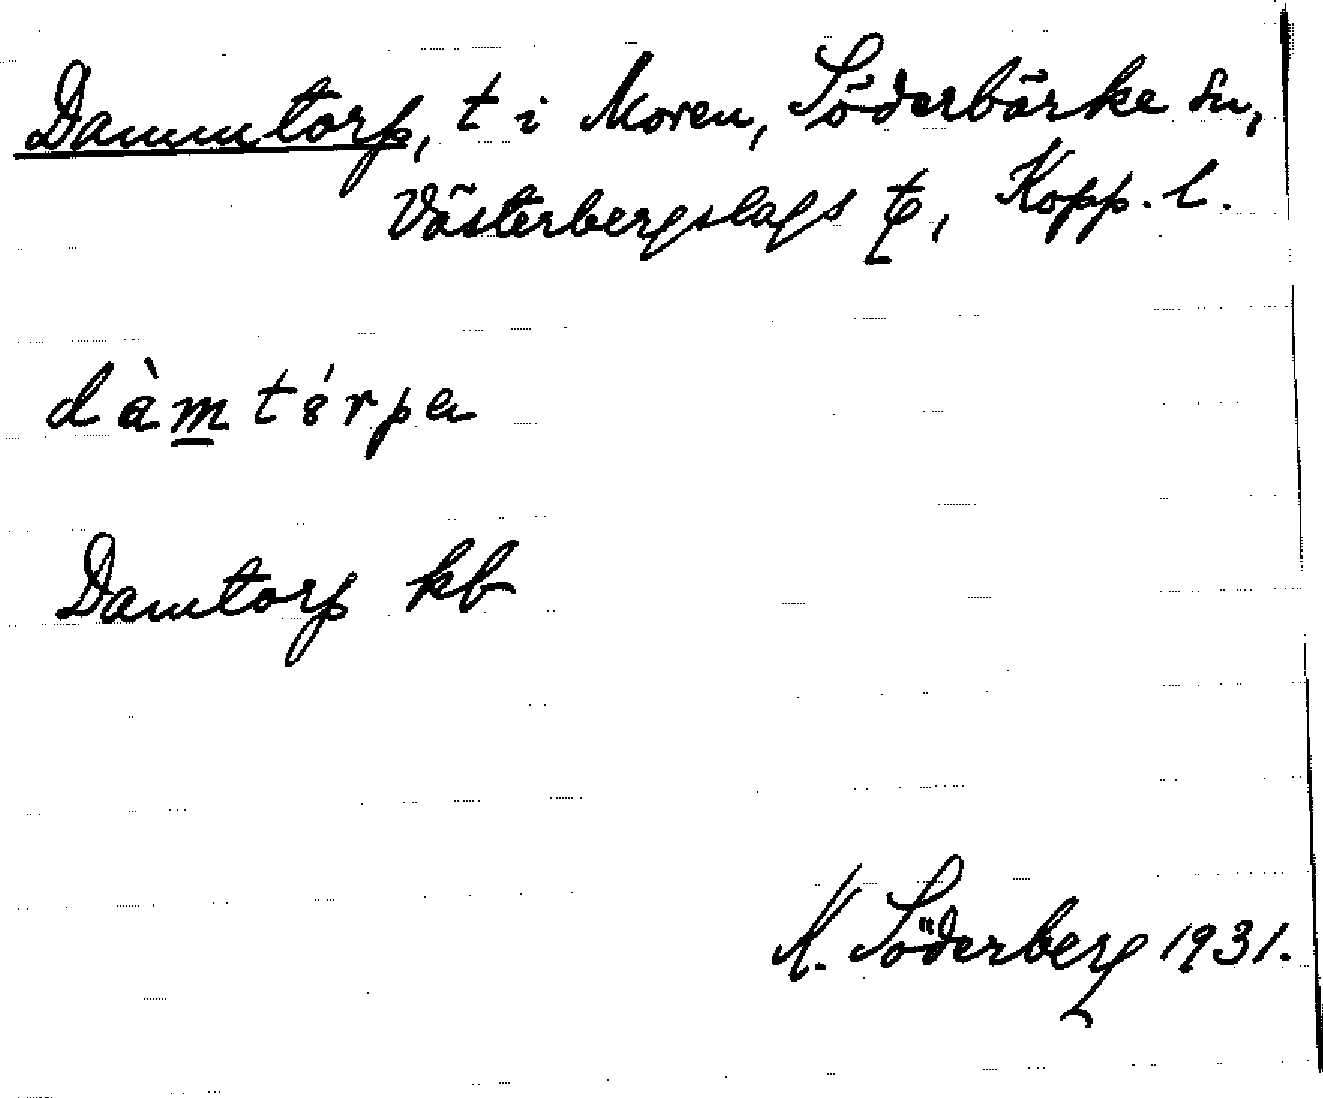 Dammtorp, t i Moren, Söderbärke sn,
Västerbergslags t, Kopp. l.
dàm̲ tórpa
Damtorp kb
N. Söderberg 1931.